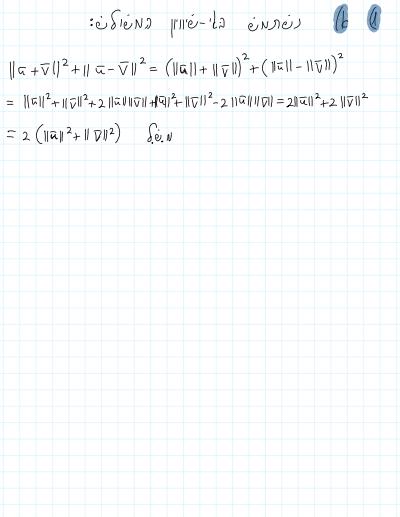 1 a נשתמש באי-שוויון המשולש:
||ū + v̄||² + ||ū - v̄||² = (||ū|| + ||v̄||)² + (||ū|| - ||v̄||)²
= ||ū||² + ||v̄||² + 2||ū||||v̄|| + ||ū||² + ||v̄||² - 2||ū||||v̄|| = 2||ū||² + 2||v̄||²
= 2(||ū||² + ||v̄||²) מ.ש.ל